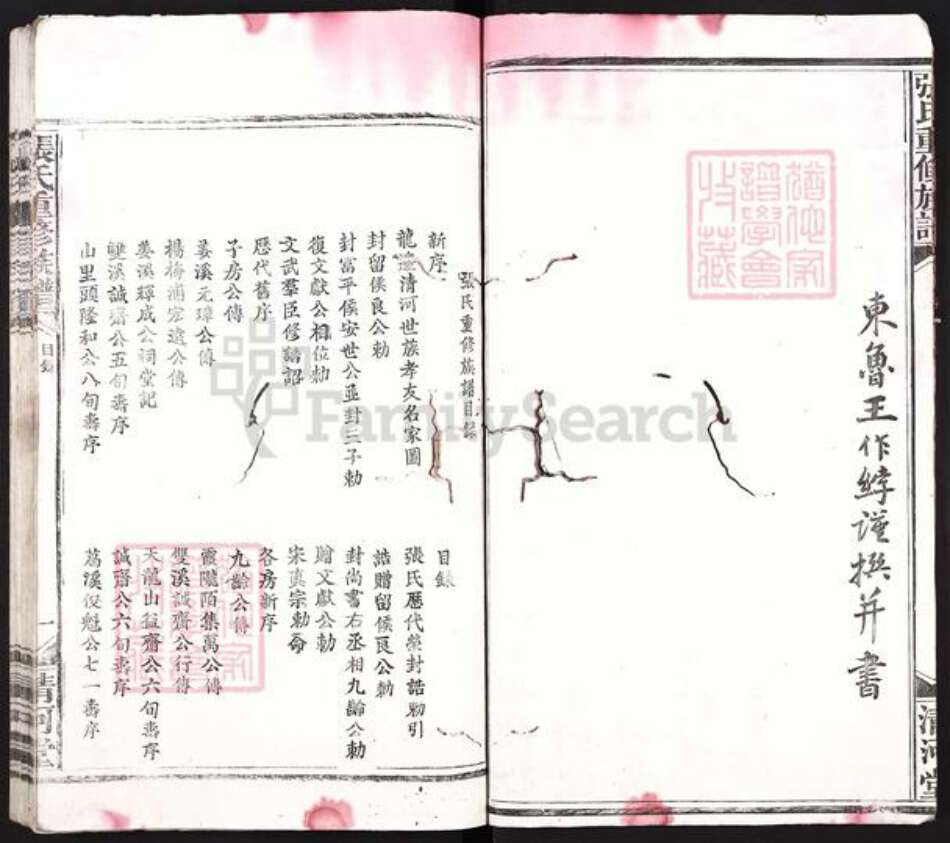 張氏重修族譜
清河堂
東魯王作綍謹撰并書
猶他家譜學會收藏
張氏重修族譜目錄
新序
目錄
龍邉清河世族孝友名家圖
張氏歷代榮封誥勅引
封留侯良公勅
誥贈留侯良公勅
封富平侯安世公並封三子勅
封尚書右丞相九齡公勅
復文獻公相位勅
贈文獻公勅
文武羣臣修譜詔
宋真宗勅命
歷代舊序
各房新序
子房公傳
九齡公傳
姜溪元璋公傳
霞隴陌集萬公傳
楊梅浦宏遠公傳
雙溪誠齋公行傳
姜溪輝成公祠堂記
天龍山益齋公六旬壽序
雙溪誠齋公五旬壽序
誠齋公六旬壽序
山里頭隆和公八旬壽序
萬溪俊魁公七一壽序
張氏重修族譜
目錄
一
清河堂
FamilySearch